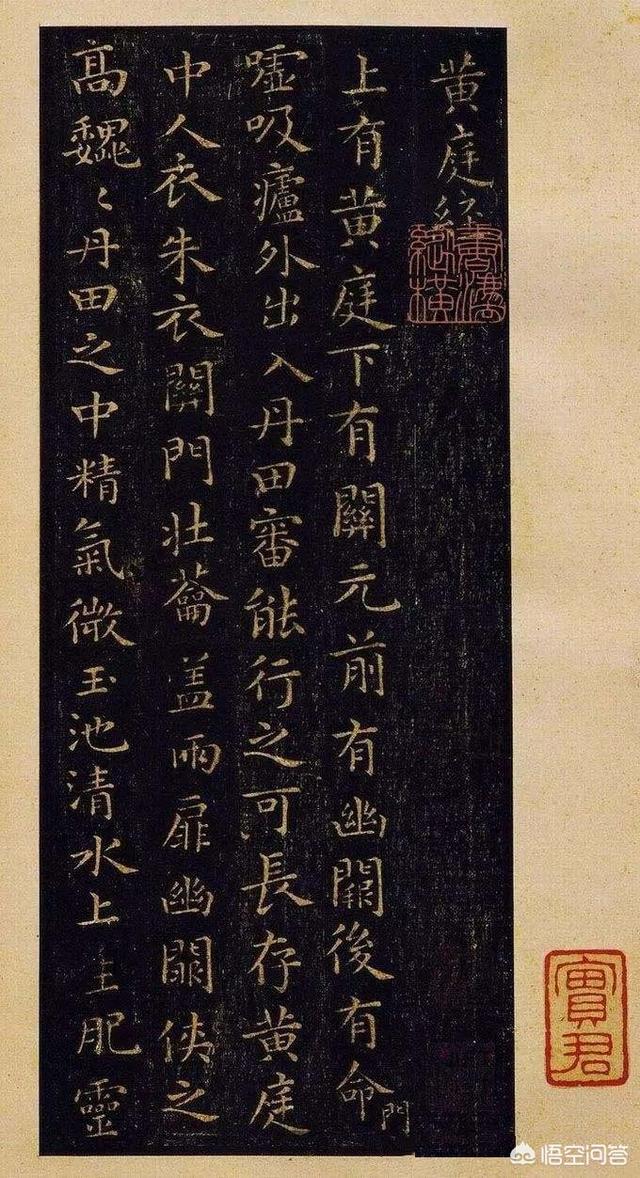 黄庭經
上有黄庭下有關元前有幽闕後有命門
嘘吸廬外出入丹田審能行之可長存黄庭
中人衣朱衣關門壯蘥盖兩扉幽闕俠之
高魏〻丹田之中精氣微玉池清水上生肥靈
實君
悟空问答